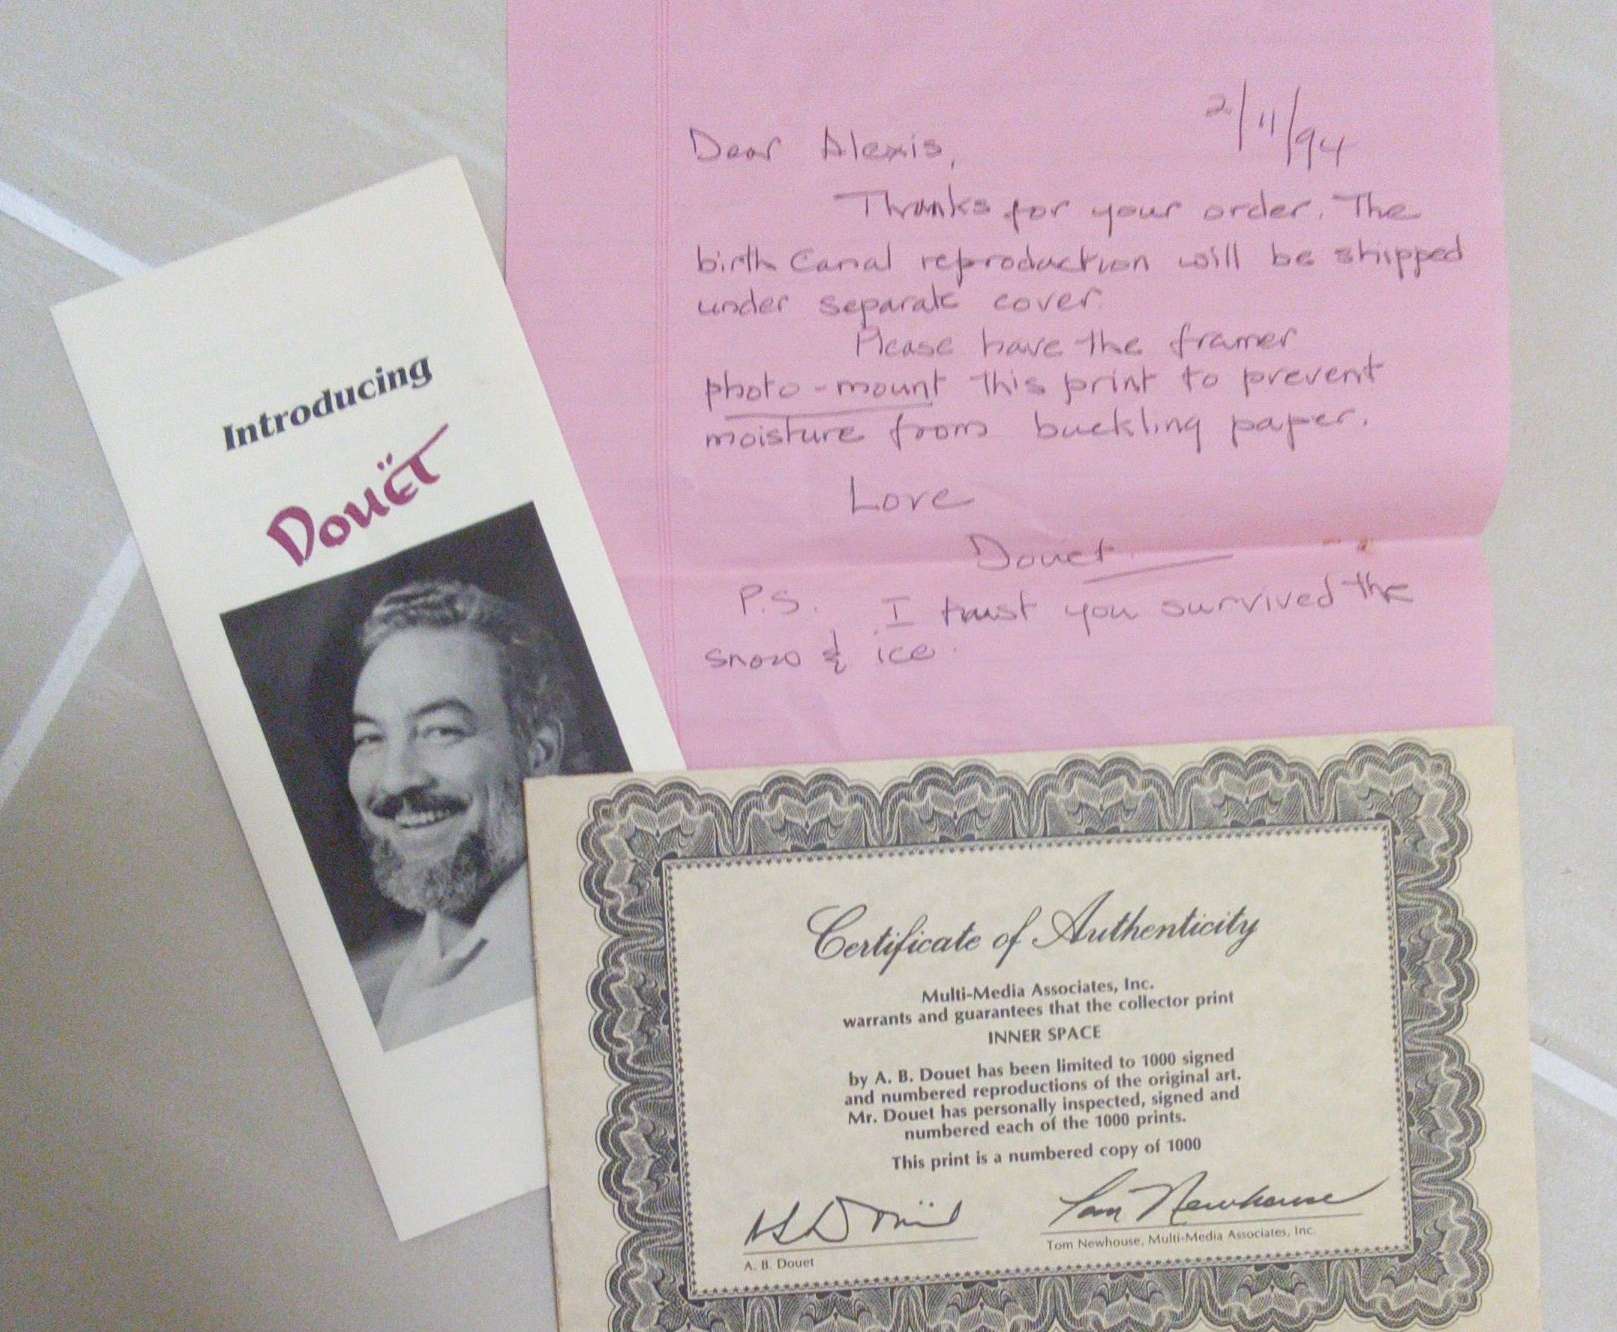 Introducing
Douët
2/11/94
Dear Alexis,
Thanks for your order. The
birth Canal reproduction will be shipped
under separate cover.
Please have the framer
photo-mount this print to prevent
moisture from buckling paper.
Love
Douet
P.S. I trust you survived the
snow & ice.
Certificate of Authenticity
Multi-Media Associates, Inc.
warrants and guarantees that the collector print
INNER SPACE
by A. B. Douet has been limited to 1000 signed
and numbered reproductions of the original art.
Mr. Douet has personally inspected, signed and
numbered each of the 1000 prints.
This print is a numbered copy of 1000
Tom Newhouse
A. B. Douet
Tom Newhouse, Multi-Media Associates, Inc.